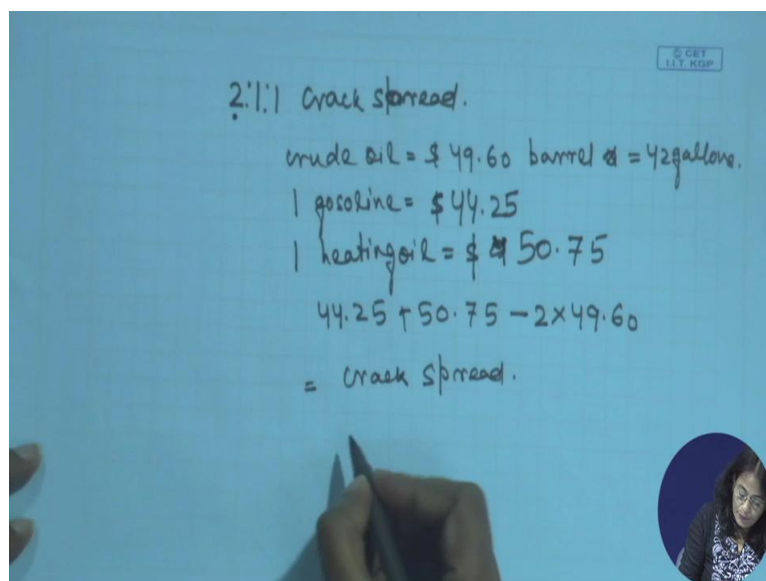 © CET
I.I.T. KGP
2:1:1 Crack spread.
crude oil = $ 49.60 barrel = 42 gallons.
1 gasoline = $44.25
1 heating oil = $ 50.75
44.25 + 50.75 - 2×49.60
= crack spread.